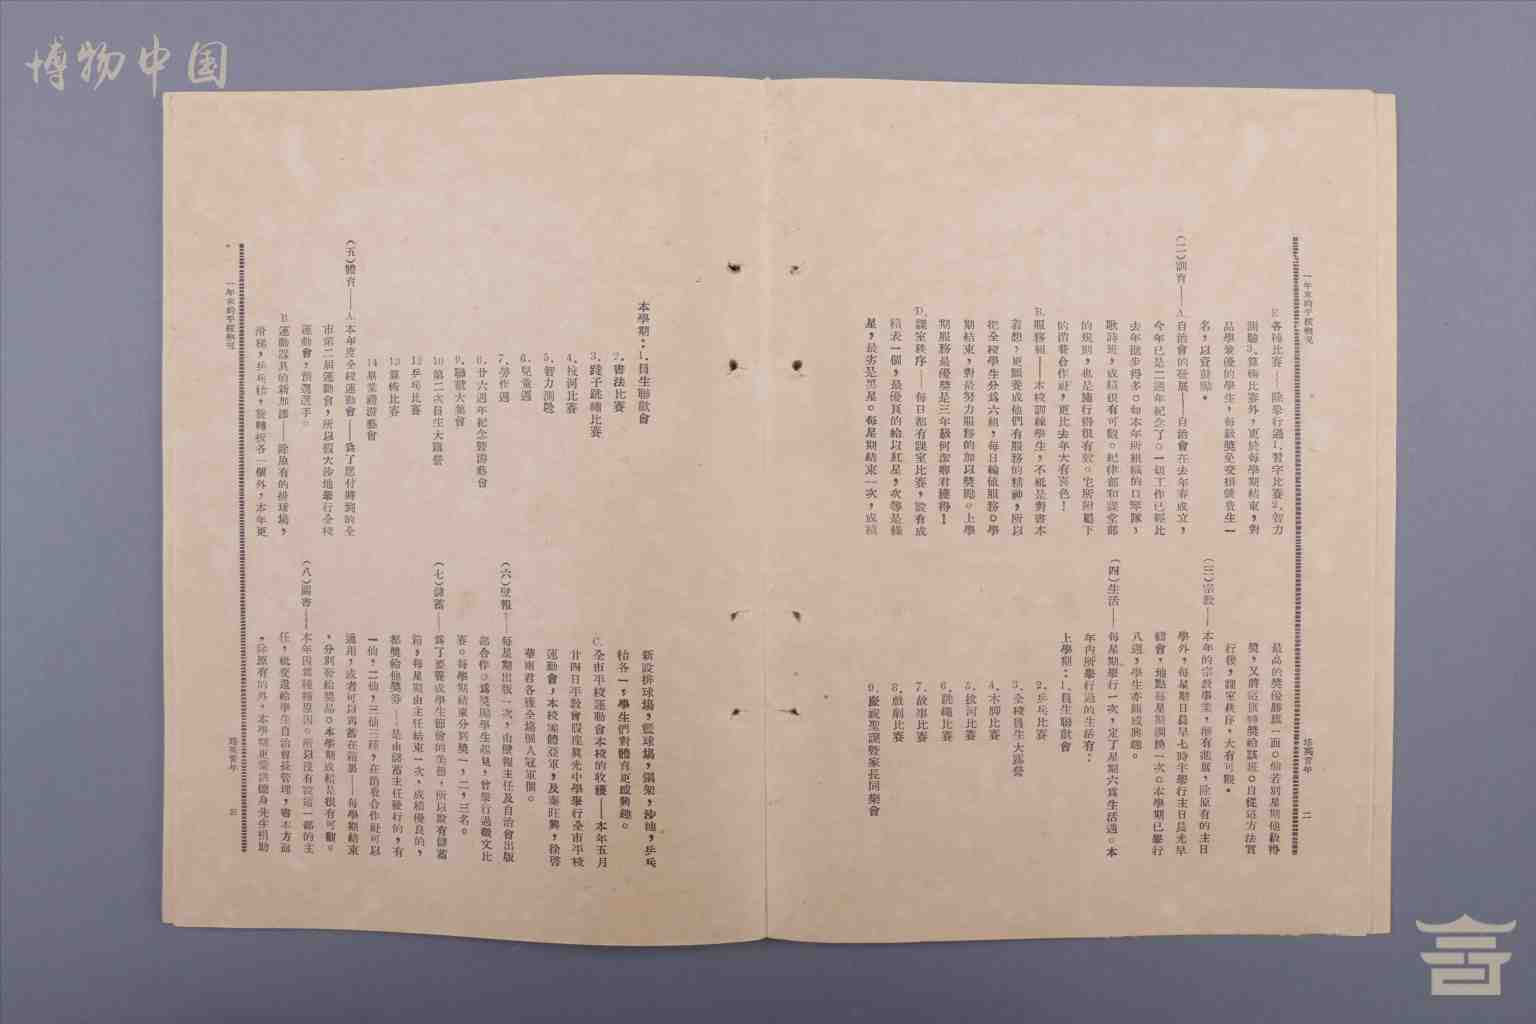 博物中国
一年來的平校概況
培英青年
二
E.各種比賽——除舉行過1.習字比賽2.智力
測驗3.算術比賽外，更於每學期結束，對
品學兼優的學生，每級獎免交損失費生一
名，以資鼓勵。
(二)訓育——A.自治會的發展——自治會在去年春成立，
今年已是二週年紀念了。一切工作已經比
去年進步得多。如本年所組織的口琴隊，
歌詩班，成績很有可觀。紀律部和課堂部
的規則，也是施行得很有效。它所附屬下
的消費合作社，更比去年大有喜色！
B.服務組——本校訓練學生，不祗是對書本
着想，更願養成他們有服務的精神，所以
把全校學生分為六組，每日輪值服務。學
期結束，對最努力服務的加以獎勵。上學
期服務最優獎是三年級何潔卿君獲得！
D.課室秩序——每日都有課室比賽，設有成
績表一個，最優良的給以紅星，次等是綠
星，最劣是黑星。每星期結束一次，成績
最高的獎優勝旗一面。倘若別星期他級得
獎，又將這旗轉獎給該班。自從這方法實
行後，課室秩序，大有可觀。
(三)宗教——本年的宗教事業，極有進展，除原有的主日
學外，每星期日晨早七時半舉行主日晨光早
禱會，地點每星期調換一次。本學期已舉行
八週，學生亦頗感興趣。
(四)生活——每星期舉行一次，定了星期六為生活週。本
年內所舉行過的生活有：
上學期：1.員生聯歡會
2.乒乓比賽
3.全校員生大露營
4.木脚比賽
5.拔河比賽
6.跳繩比賽
7.故事比賽
8.戲劇比賽
9.慶祝聖誕暨家長同樂會
本學期：1.員生聯歡會
2.書法比賽
3.踐子跳繩比賽
4.拔河比賽
5.智力測驗
6.兒童週
7.勞作週
8.廿六週年紀念暨游藝會
9.聯歡大茶會
10第二次員生大露營
12乒乓比賽
13算術比賽
14畢業禮游藝會
(五)體育——A.本年度全校運動會——為了應付將到的全
市第二屆運動會，所以假大沙地舉行全校
運動會，預選選手。
B.運動器具的新加添——除原有的排球場，
滑梯，乒乓枱，旋轉板各一個外，本年更
新設排球場，籃球場，鞦架，沙池，乒乓
枱各一，學生們對體育更感興趣。
C.全市平校運動會本校的收穫——本年五月
廿四日平教會假座真光中學舉行全市平校
運動會，本校奪體亞軍，及秦旺興，徐啓
華兩君各獲全場個人冠軍個。
(六)壁報——每星期出版一次，由健報主任及自治會出版
部合作。為獎勵學生起見，曾舉行過徵文比
賽。每學期結束分別獎一，二，三名。
(七)儲蓄——為了要養成學生節儉的美德，所以設有儲蓄
箱，每星期由主任結束一次，成績優良的，
都獎給他獎券——是由儲蓄主任發行的，有
一仙，二仙，三仙三種，在消費合作社可以
通用，或者可以再蓄在箱裏——每學期結束
，分別頒給獎品。本學期成績是很有可觀。
(八)圖書——本年因為種種原因。所以沒有設這一部的主
任，祇交還給學生自治會長管理，書本方面
，除原有的外，本學期更蒙洪德身先生捐助
一年來的平校概況
培英青年
三